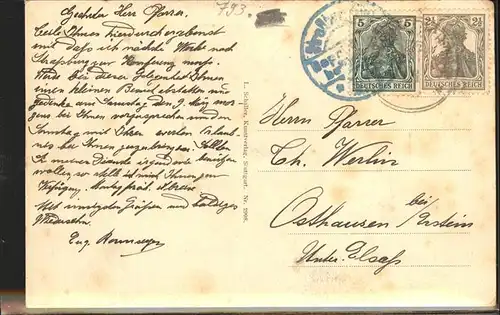 793.
Geehrter Herr Pfarrer.
Teile Ihnen hierdurch ergebenst
mit daß ich nächste Woche nach
Straßburg zur Konferenz
Werde bei dieser Gelegenheit Ihnen
einen kleinen Besuch abstatten und
gedenke am Samstag den 9. Mai
bei Ihnen vorzusprechen und den
Sonntag mit Ihrer werten Erlaub-
nis bei Ihnen zuzubringen. Sollten
Sie meiner Dienste irgendwie
wollen, so stelle ich mich Ihnen zur
Verfügung.
Mit innigsten Grüßen und baldiges
Wiedersehn
Eug.
L. Schaller, Kunstverlag, Stuttgart. Nr. 2998.
5 5
DEUTSCHES REICH
2½ 2½
DEUTSCHES REICH
Herrn Pfarrer
Th. Werlin
Osthausen bei Erstein
Unter-Elsaß